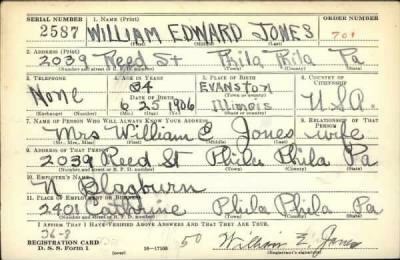 SERIAL NUMBER 1. NAME (Print) ORDER NUMBER
2587 WILLIAM EDWARD JONES 701
(First) (Middle) (Last)
2. ADDRESS (Print)
2039 Reed St Phila Phila Pa
(Number and street or R. F. D. number) (Town) (County) (State)
3. TELEPHONE 4. AGE IN YEARS 5. PLACE OF BIRTH 6. COUNTRY OF CITIZENSHIP
None 34 EVANSTON
DATE OF BIRTH (Town or county)
6 23 1906 Illinois U.S.A.
(Exchange) (Number) (Mo.) (Day) (Yr.) (State or country)
7. NAME OF PERSON WHO WILL ALWAYS KNOW YOUR ADDRESS 8. RELATIONSHIP OF THAT PERSON
Mrs William E Jones wife
(Mr., Mrs., Miss) (First) (Middle) (Last)
9. ADDRESS OF THAT PERSON
2039 Reed St Phila Phila Pa
(Number and street or R. F. D. number) (Town) (County) (State)
10. EMPLOYER'S NAME
N Blagburn
11. PLACE OF EMPLOYMENT OR BUSINESS
2401 Cathrine Phila Phila Pa
(Number and street or R. F. D. number) (Town) (County) (State)
I AFFIRM THAT I HAVE VERIFIED ABOVE ANSWERS AND THAT THEY ARE TRUE.
36-8
REGISTRATION CARD
D. S. S. Form 1 16—17105 50 William E. Jones
(Registrant's signature)